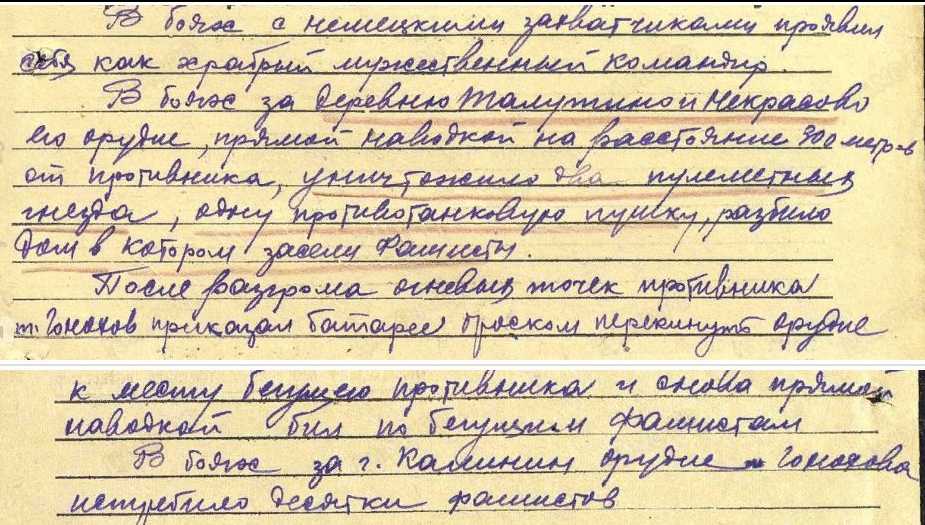 В боях с немецкими захватчиками проявил
себя как храбрый мужественный командир.
В боях за деревню Малутино и Некрасово
его орудие, прямой наводкой на расстояние 300 метров
от противника, уничтожило два пулеметных
гнезда, одну противотанковую пушку, разбило
дом в котором засели фашисты.
После разгрома огневых точек противника
т. Гонохов приказал батарее броском перекинуть орудие
к месту бегущего противника и снова прямой
наводкой бил по бегущим фашистам
В боях за г. Калинин орудие Гонохова
истребило десятки фашистов